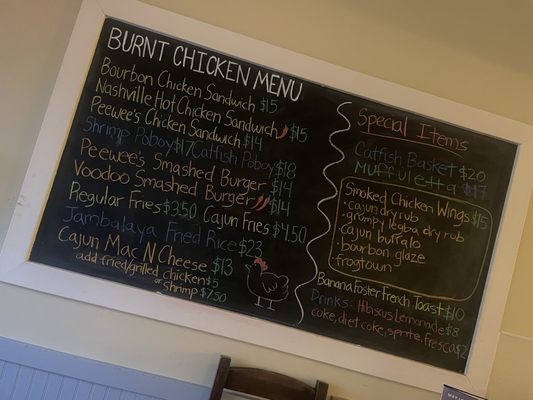 BURNT CHICKEN MENU
Bourbon Chicken Sandwich $15
Nashville Hot Chicken Sandwich $15
Peewee's Chicken Sandwich $14
Shrimp Poboy $17 Catfish Poboy $18
Peewee's Smashed Burger $14
Voodoo Smashed Burger $14
Regular Fries $3.50 Cajun Fries $4.50
Jambalaya Fried Rice $23
Cajun Mac N Cheese $13
add fried/grilled chicken $5
or shrimp $7.50
Special Items
Catfish Basket $20
Muffuletta $17
Smoked Chicken Wings $15
• cajun dry rub
• grumpy legba dry rub
• cajun buffalo
• bourbon glaze
• frogtown
Banana Foster French Toast $10
Drinks: Hibiscus Lemonade $8
coke, diet coke, sprite, fresca $2